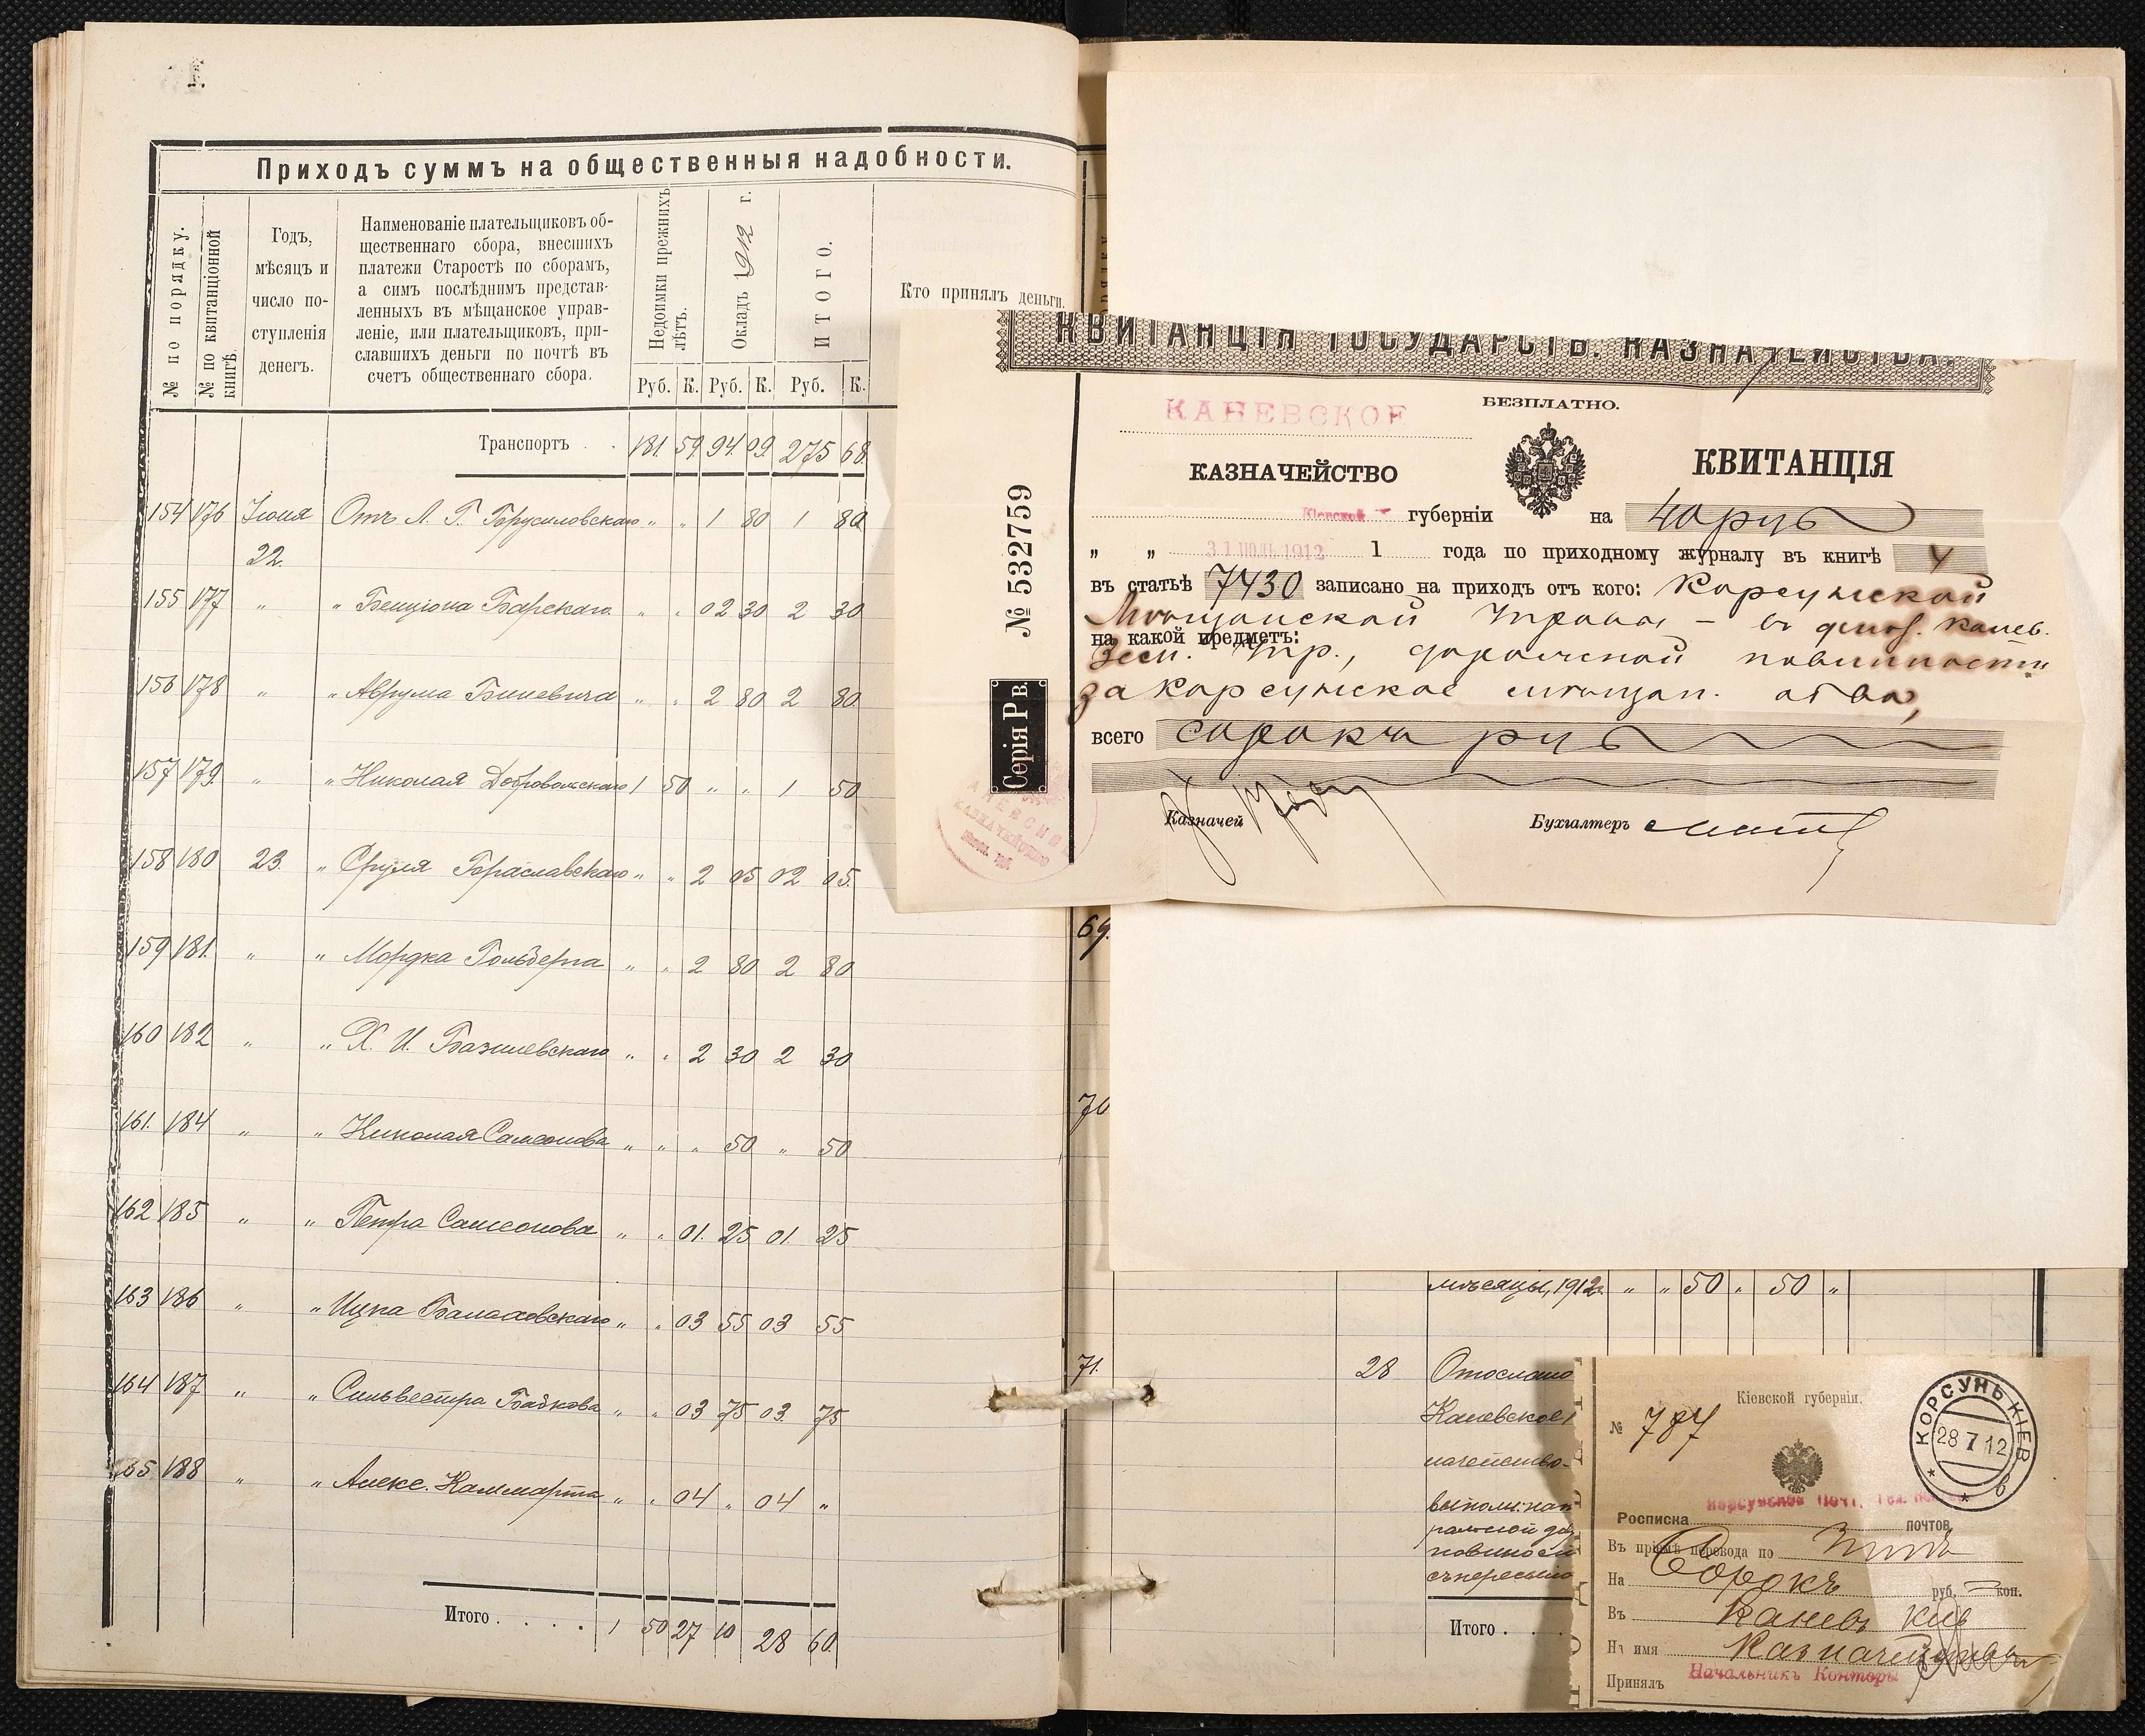 Приходъ суммъ на общественныя надобности.
№ по порядку.
№ по квитанціонной
книгѣ.
Годъ,
мѣсяцъ и
число по-
ступленія
денегъ.
Наименованіе плательщиковъ об-
щественнаго сбора, внесшихъ
платежи Старостѣ по сборамъ,
а симъ послѣднимъ представ-
ленныхъ въ мѣщанское управ-
леніе, или плательщиковъ, при-
славшихъ деньги по почтѣ въ
счетъ общественнаго сбора.
Недоимки прежнихъ
лѣтъ.
Окладъ 1912 г.
ИТОГО.
Кто принялъ деньги.
Руб. К. Руб. К. Руб. К.
Транспортъ . . 181 59 94 09 275 68
154 176 Іюня Отъ Л. Г. Брусиловскаго „ „ 1 80 1 80
22.
155 177 „ „ Бенціона Барскаго „ „ 02 30 2 30
156 178 „ „ Аврума Биневича „ „ 2 80 2 80
157 179 „ „ Николая Добровольскаго 1 50 „ „ 1 50
158 180 23. „ Сруля Браславскаго „ „ 2 05 02 05
159 181 „ „ Мордка Гольберга „ „ 2 80 2 80
160 182 „ „ Х. И. Базилевскаго „ „ 2 30 2 30
161 184 „ „ Николая Самсонова „ „ „ 50 „ 50
162 185 „ „ Петра Самсонова „ „ 01 25 01 25
163 186 „ „ Ицка Балаховскаго „ „ 03 55 03 55
164 187 „ „ Сильвестра Бабкова „ „ 03 75 03 75
165 188 „ „ Алекс. „ „ 04 „ 04 „
Итого . . . . 1 50 27 10 28 60
КВИТАНЦІЯ ГОСУДАРСТВ. КАЗНАЧЕЙСТВА.
БЕЗПЛАТНО.
КАНЕВСКОЕ
КАЗНАЧЕЙСТВО
КВИТАНЦІЯ
Кіевской губерніи на 40 руб
„ „ 31 ІЮЛЬ 1912 1 года по приходному журналу въ книгѣ 4
въ статьѣ 7430 записано на приходъ отъ кого: Корсунской
Мѣщанской Управы – въ Канев.
на какой предметъ:
Зем. Упр., дорожной повинности
за Корсунское мѣщан. об-во,
всего сорокъ руб
Казначей
Бухгалтеръ
№ 532759
Серія Р в.
КАНЕВСКОЕ
КАЗНАЧЕЙСТВО
69.
70
мѣсяцы, 1912 г. „ „ 50 „ 50 „
71. 28 Отослано
Каневское
начейство
повинос
съ пересыл
Итого .
Кіевской губерніи.
№ 787
КОРСУНЬ КІЕВ.
28 7 12
б
Корсунское Почт. Тел.
Росписка почтов.
Въ пріемѣ перевода по
На Сорокъ руб. — коп.
Въ Каневъ Кіев
На имя Казначейства
Принялъ Начальникъ Конторы